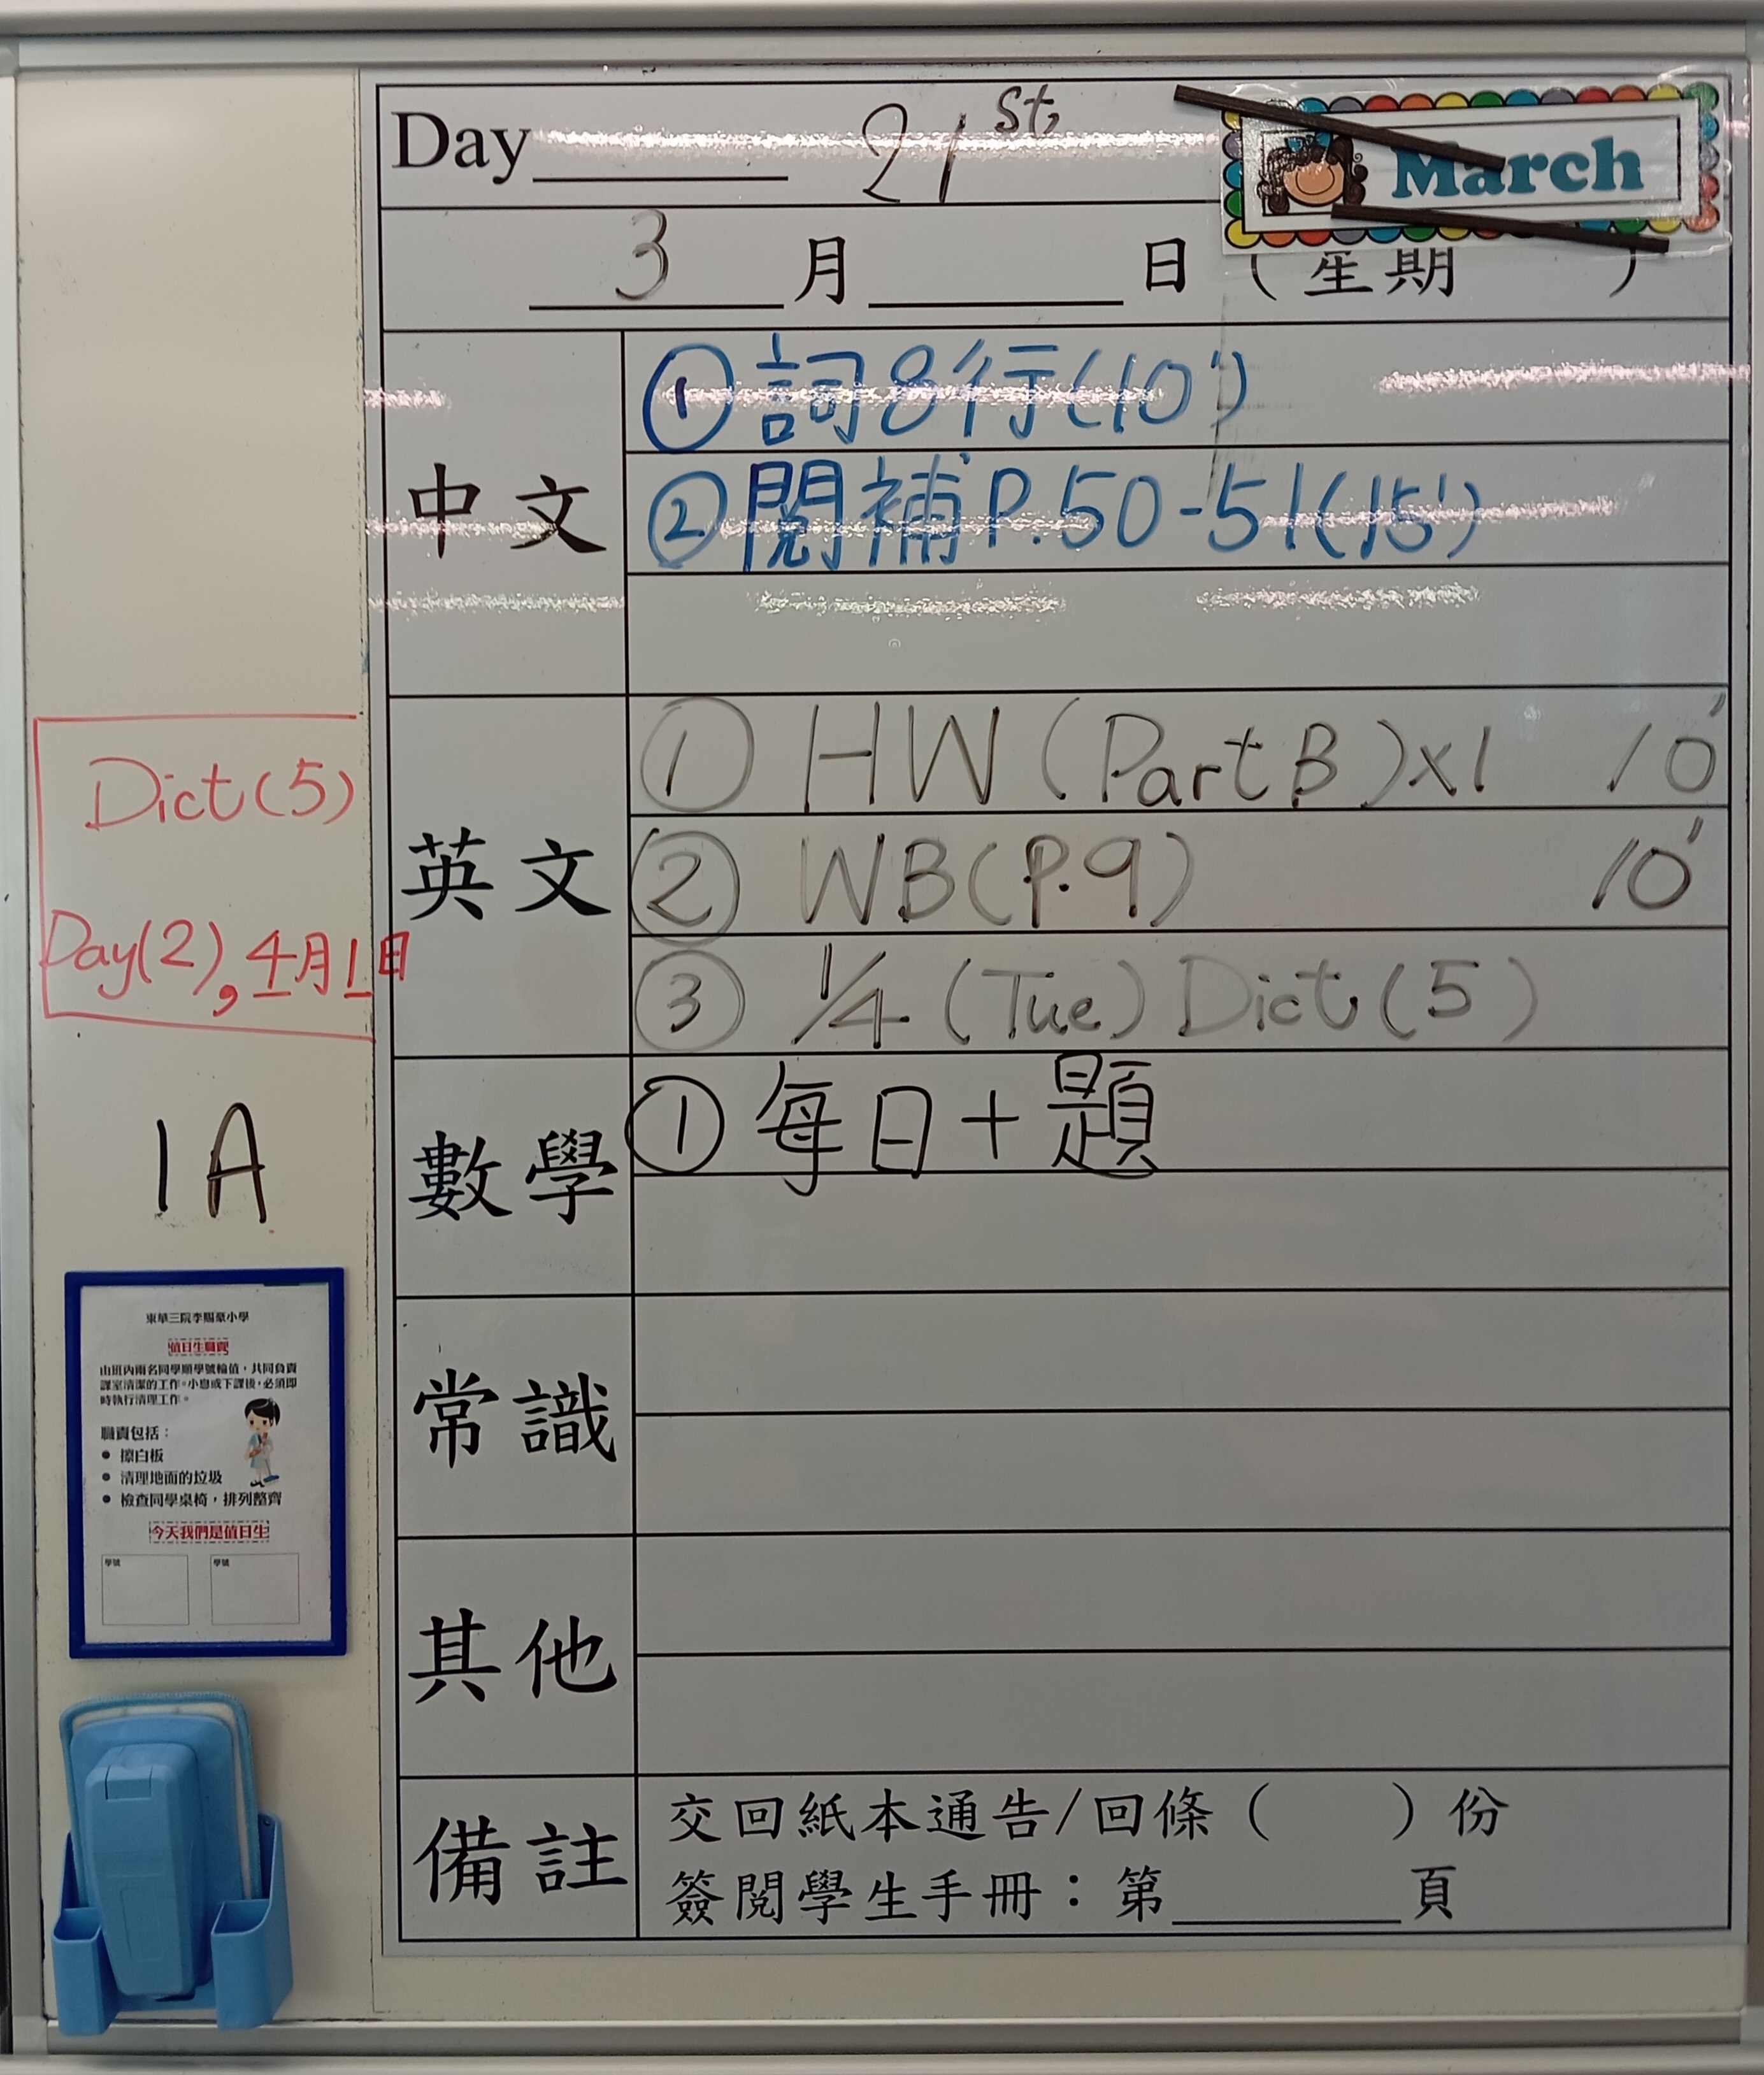 Day 21st,
March
3 月 日 ( 星期 )
中文
① 詞8行(10')
② 閱補P.50-51(15')
英文
① HW (Part B)x1 10'
② WB(P.9) 10'
③ 1/4 (Tue) Dict. (5)
數學
① 每日十題
常識
其他
備註
交回紙本通告/回條 ( ) 份
簽閱學生手冊：第 頁
Dict(5)
Day(2), 4月1日
1A
東華三院李賜豪小學
值日生職責
由班內兩名同學順學號輪值，共同負責
課室清潔的工作。小息或下課後，必須即
時執行清理工作。
職責包括：
● 擦白板
● 清理地面的垃圾
● 檢查同學桌椅，排列整齊
今天我們是值日生
學號 學號